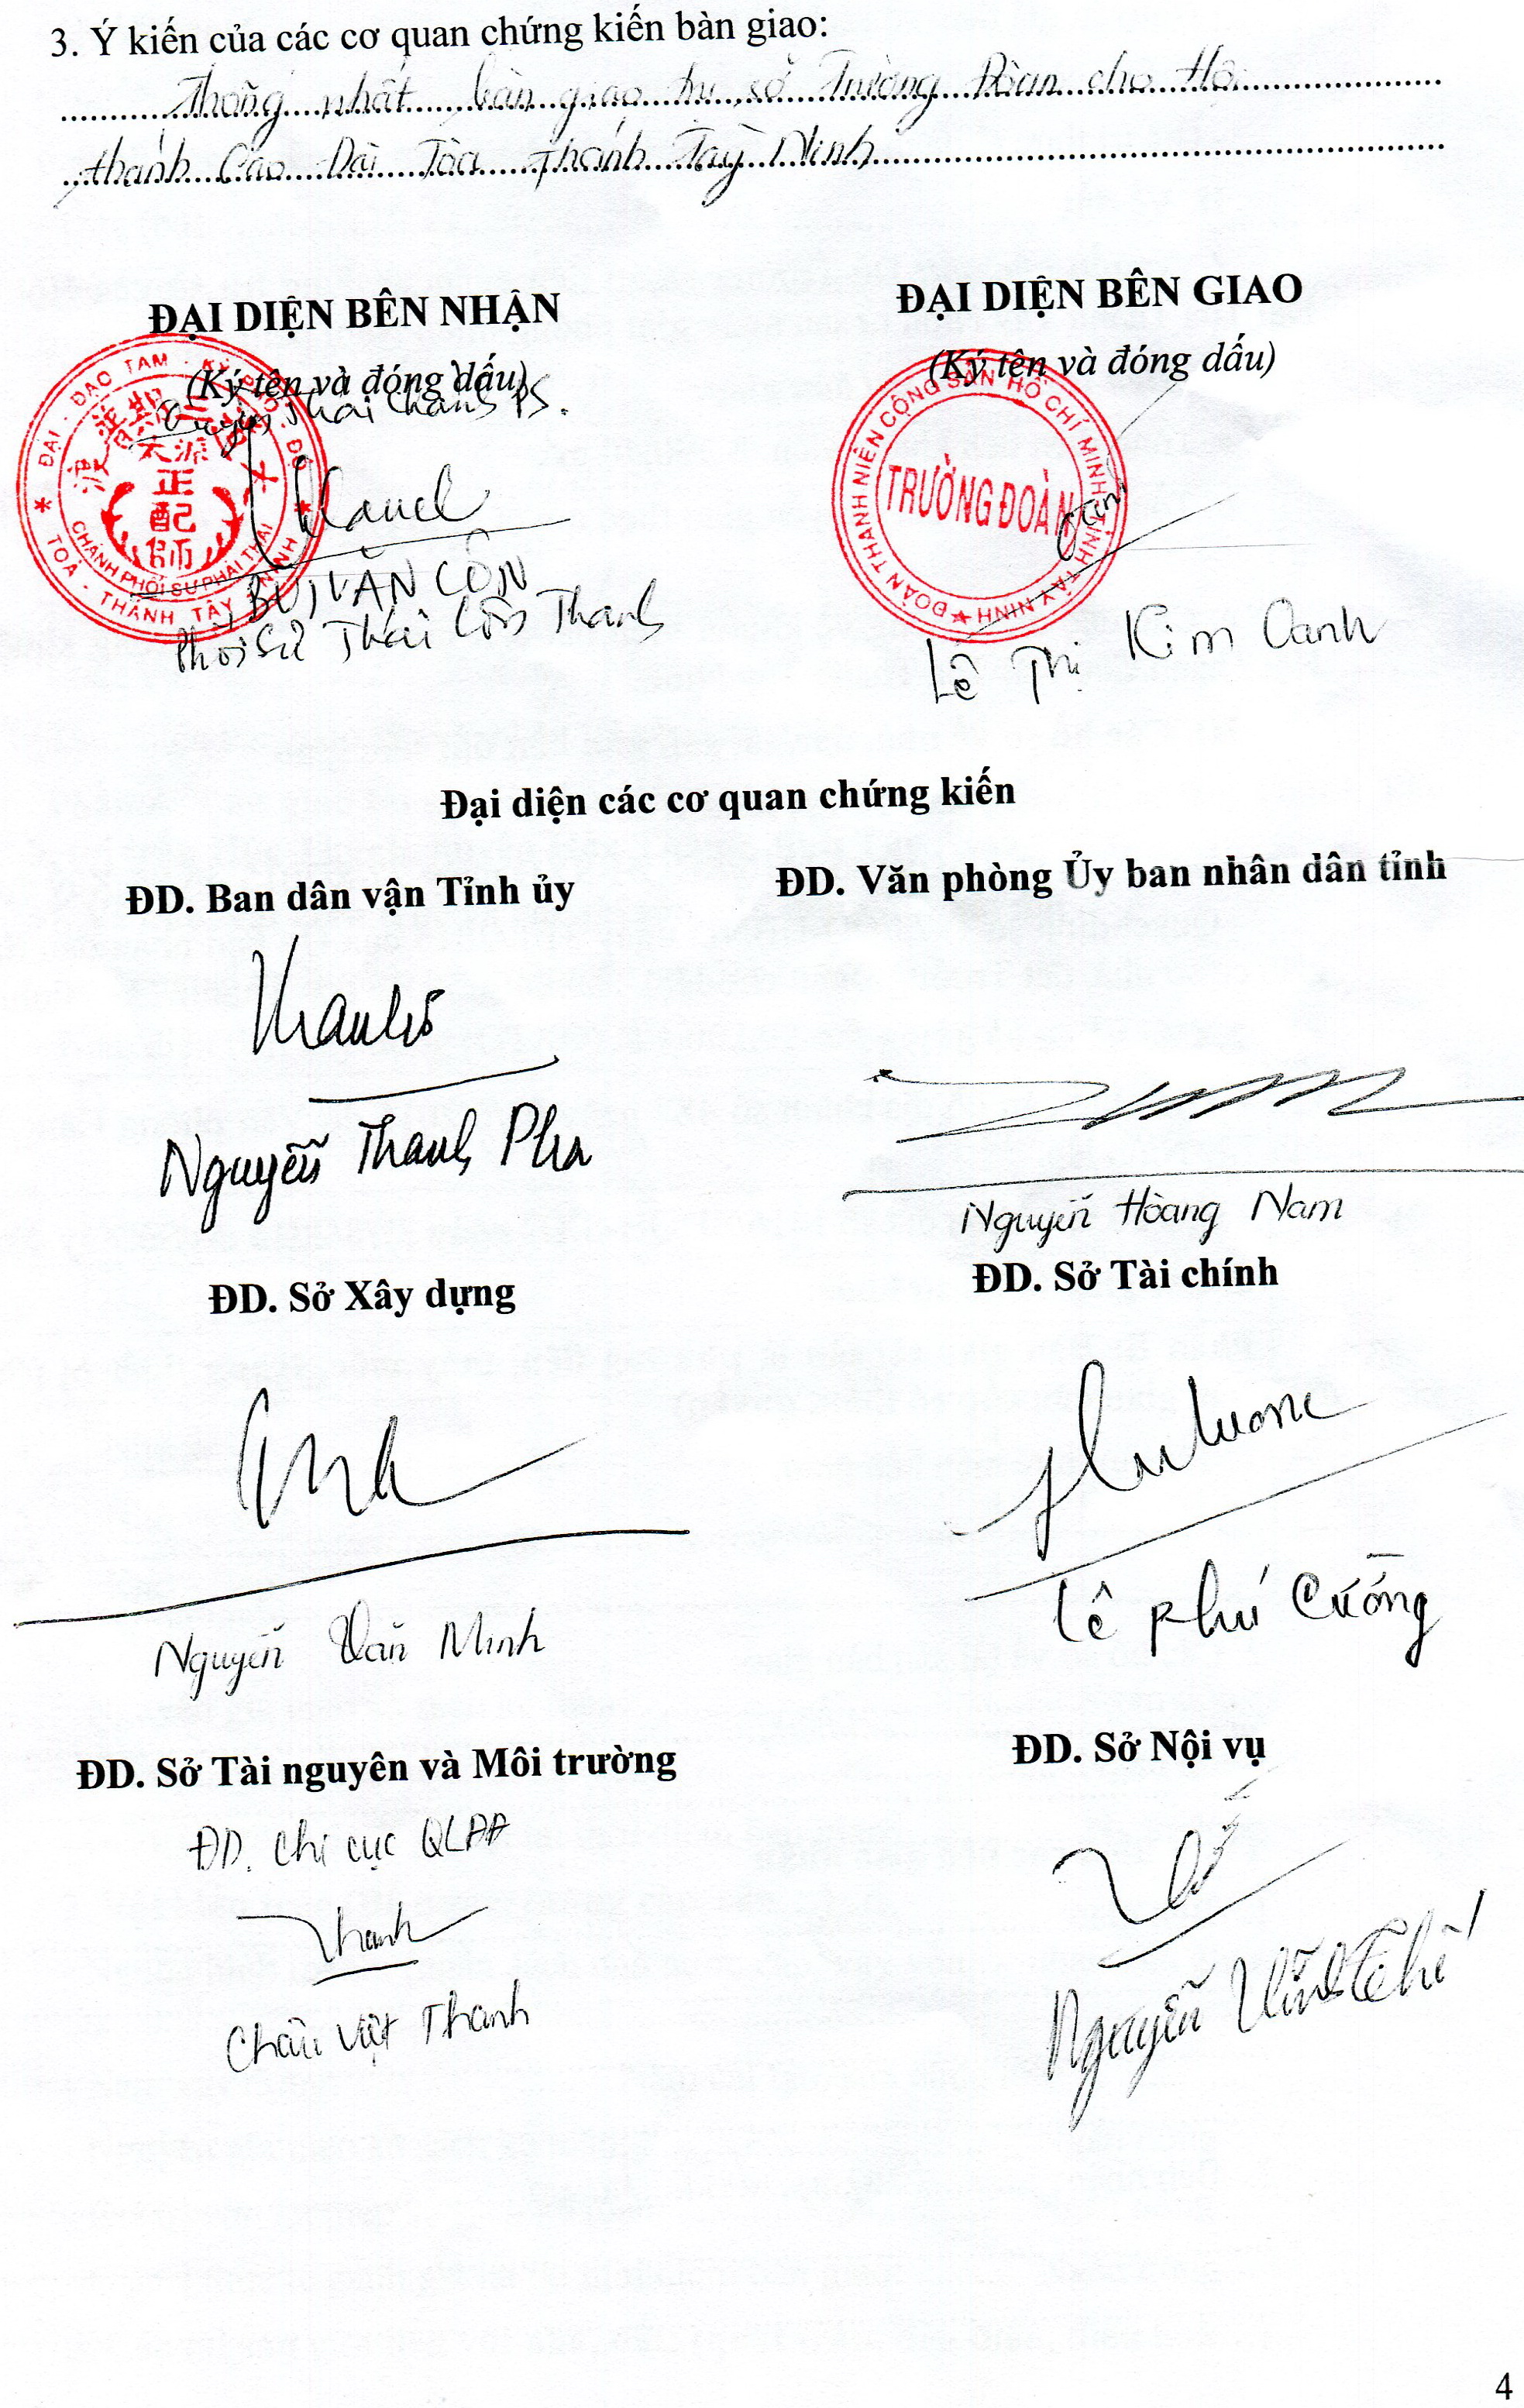 3. Ý kiến của các cơ quan chứng kiến bàn giao:
Thống nhất bàn giao trụ sở Trường Đoàn cho Hội
thánh Cao Đài Tòa Thánh Tây Ninh
ĐẠI DIỆN BÊN NHẬN
(Ký tên và đóng dấu)
Thái Chánh PS.
ĐẠI - ĐẠO TAM - KỲ PHỔ - ĐỘ
TOÀ - THÁNH TÂY NINH
正
配
師
CHÁNH PHỐI SƯ PHÁI THÁI
BÙI VĂN CÔN
Phối Sư Thái Côn Thanh
ĐẠI DIỆN BÊN GIAO
(Ký tên và đóng dấu)
ĐOÀN THANH NIÊN CỘNG SẢN HỒ CHÍ MINH TỈNH TÂY NINH
TRƯỜNG ĐOÀN
Lê Thị Kim Oanh
Đại diện các cơ quan chứng kiến
ĐD. Ban dân vận Tỉnh ủy
ĐD. Văn phòng Ủy ban nhân dân tỉnh
Nguyễn Thanh Pha
Nguyễn Hoàng Nam
ĐD. Sở Xây dựng
ĐD. Sở Tài chính
Nguyễn Văn Minh
Lê Phú Cường
ĐD. Sở Tài nguyên và Môi trường
ĐD. Sở Nội vụ
ĐD. Chi cục QLĐĐ
Thanh
Châu Việt Thanh
Nguyễn Vĩnh Thế
4